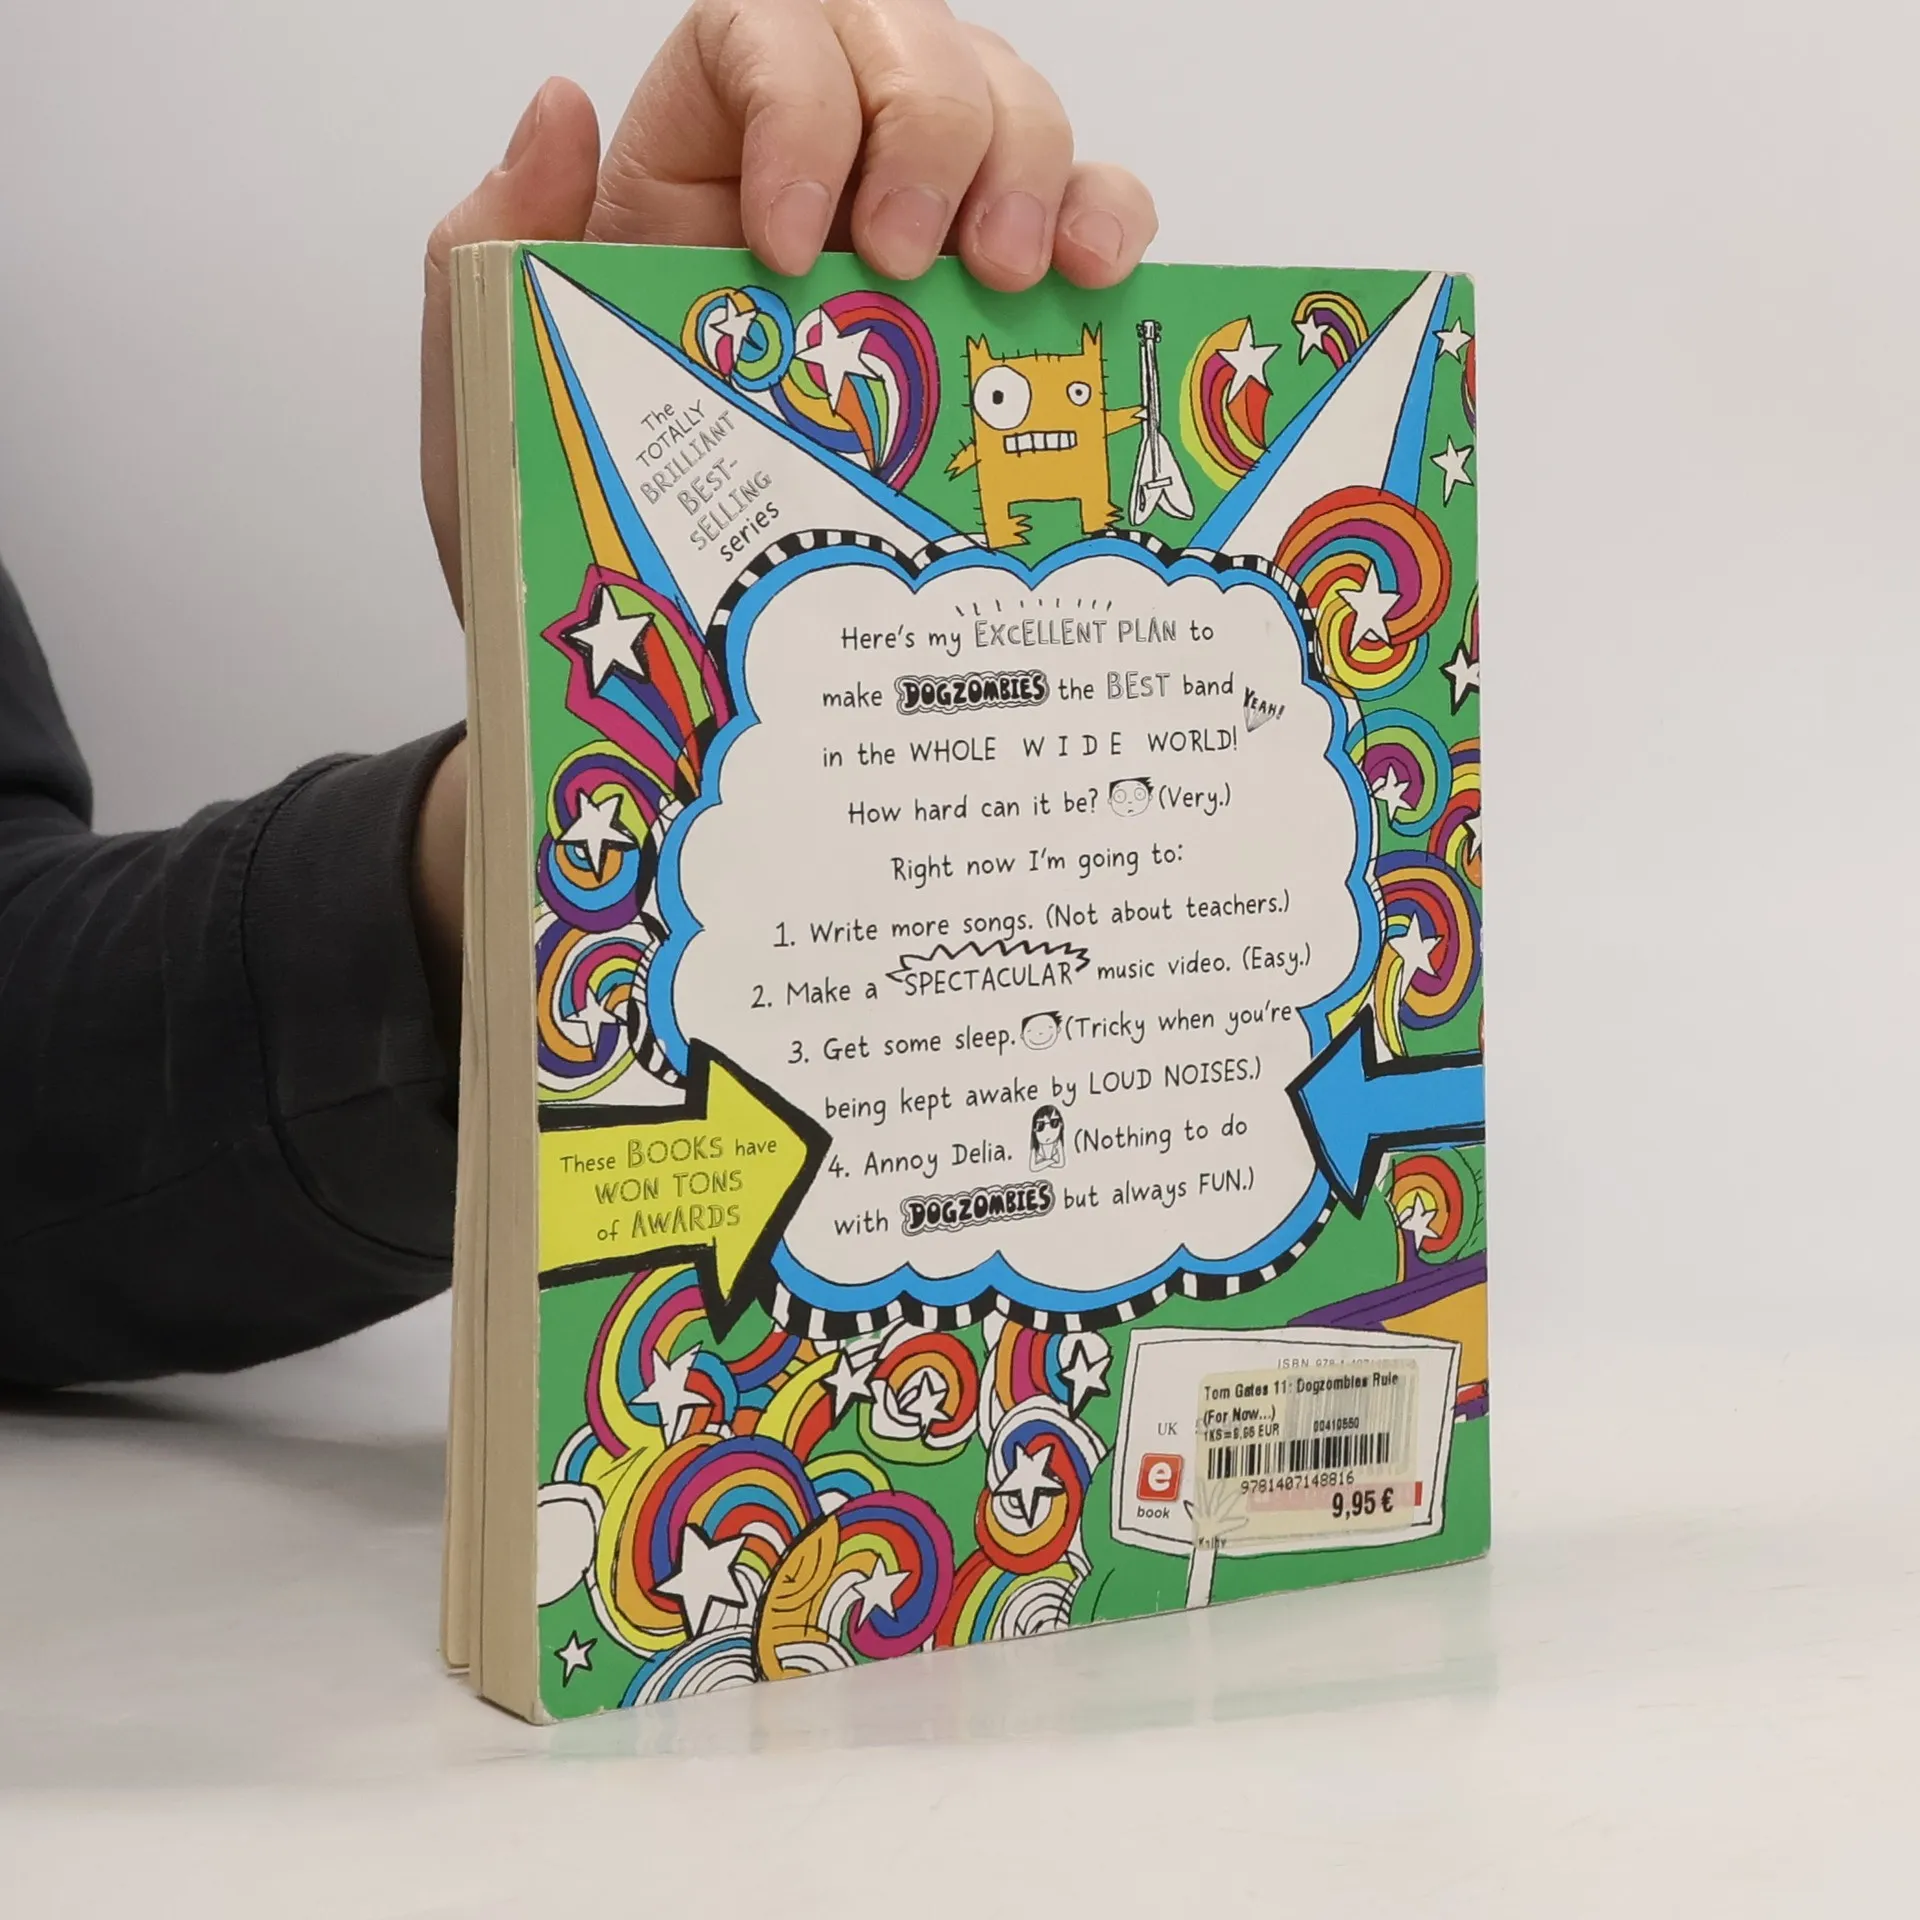 The
TOTALLY
BRILLIANT
BEST-
SELLING
series
Here's my EXCELLENT PLAN to
make DOGZOMBIES the BEST band
YEAH!
in the WHOLE W I D E WORLD!
How hard can it be? (Very.)
Right now I'm going to:
1. Write more songs. (Not about teachers.)
2. Make a SPECTACULAR music video. (Easy.)
3. Get some sleep. (Tricky when you're
being kept awake by LOUD NOISES.)
4. Annoy Delia. (Nothing to do
with DOGZOMBIES but always FUN.)
These BOOKS have
WON TONS
of AWARDS
ISBN 978-1-407
Tom Gates 11: Dogzombies Rule
(For Now...)
00410550
UK
9781407148816
9,95 €
e
book